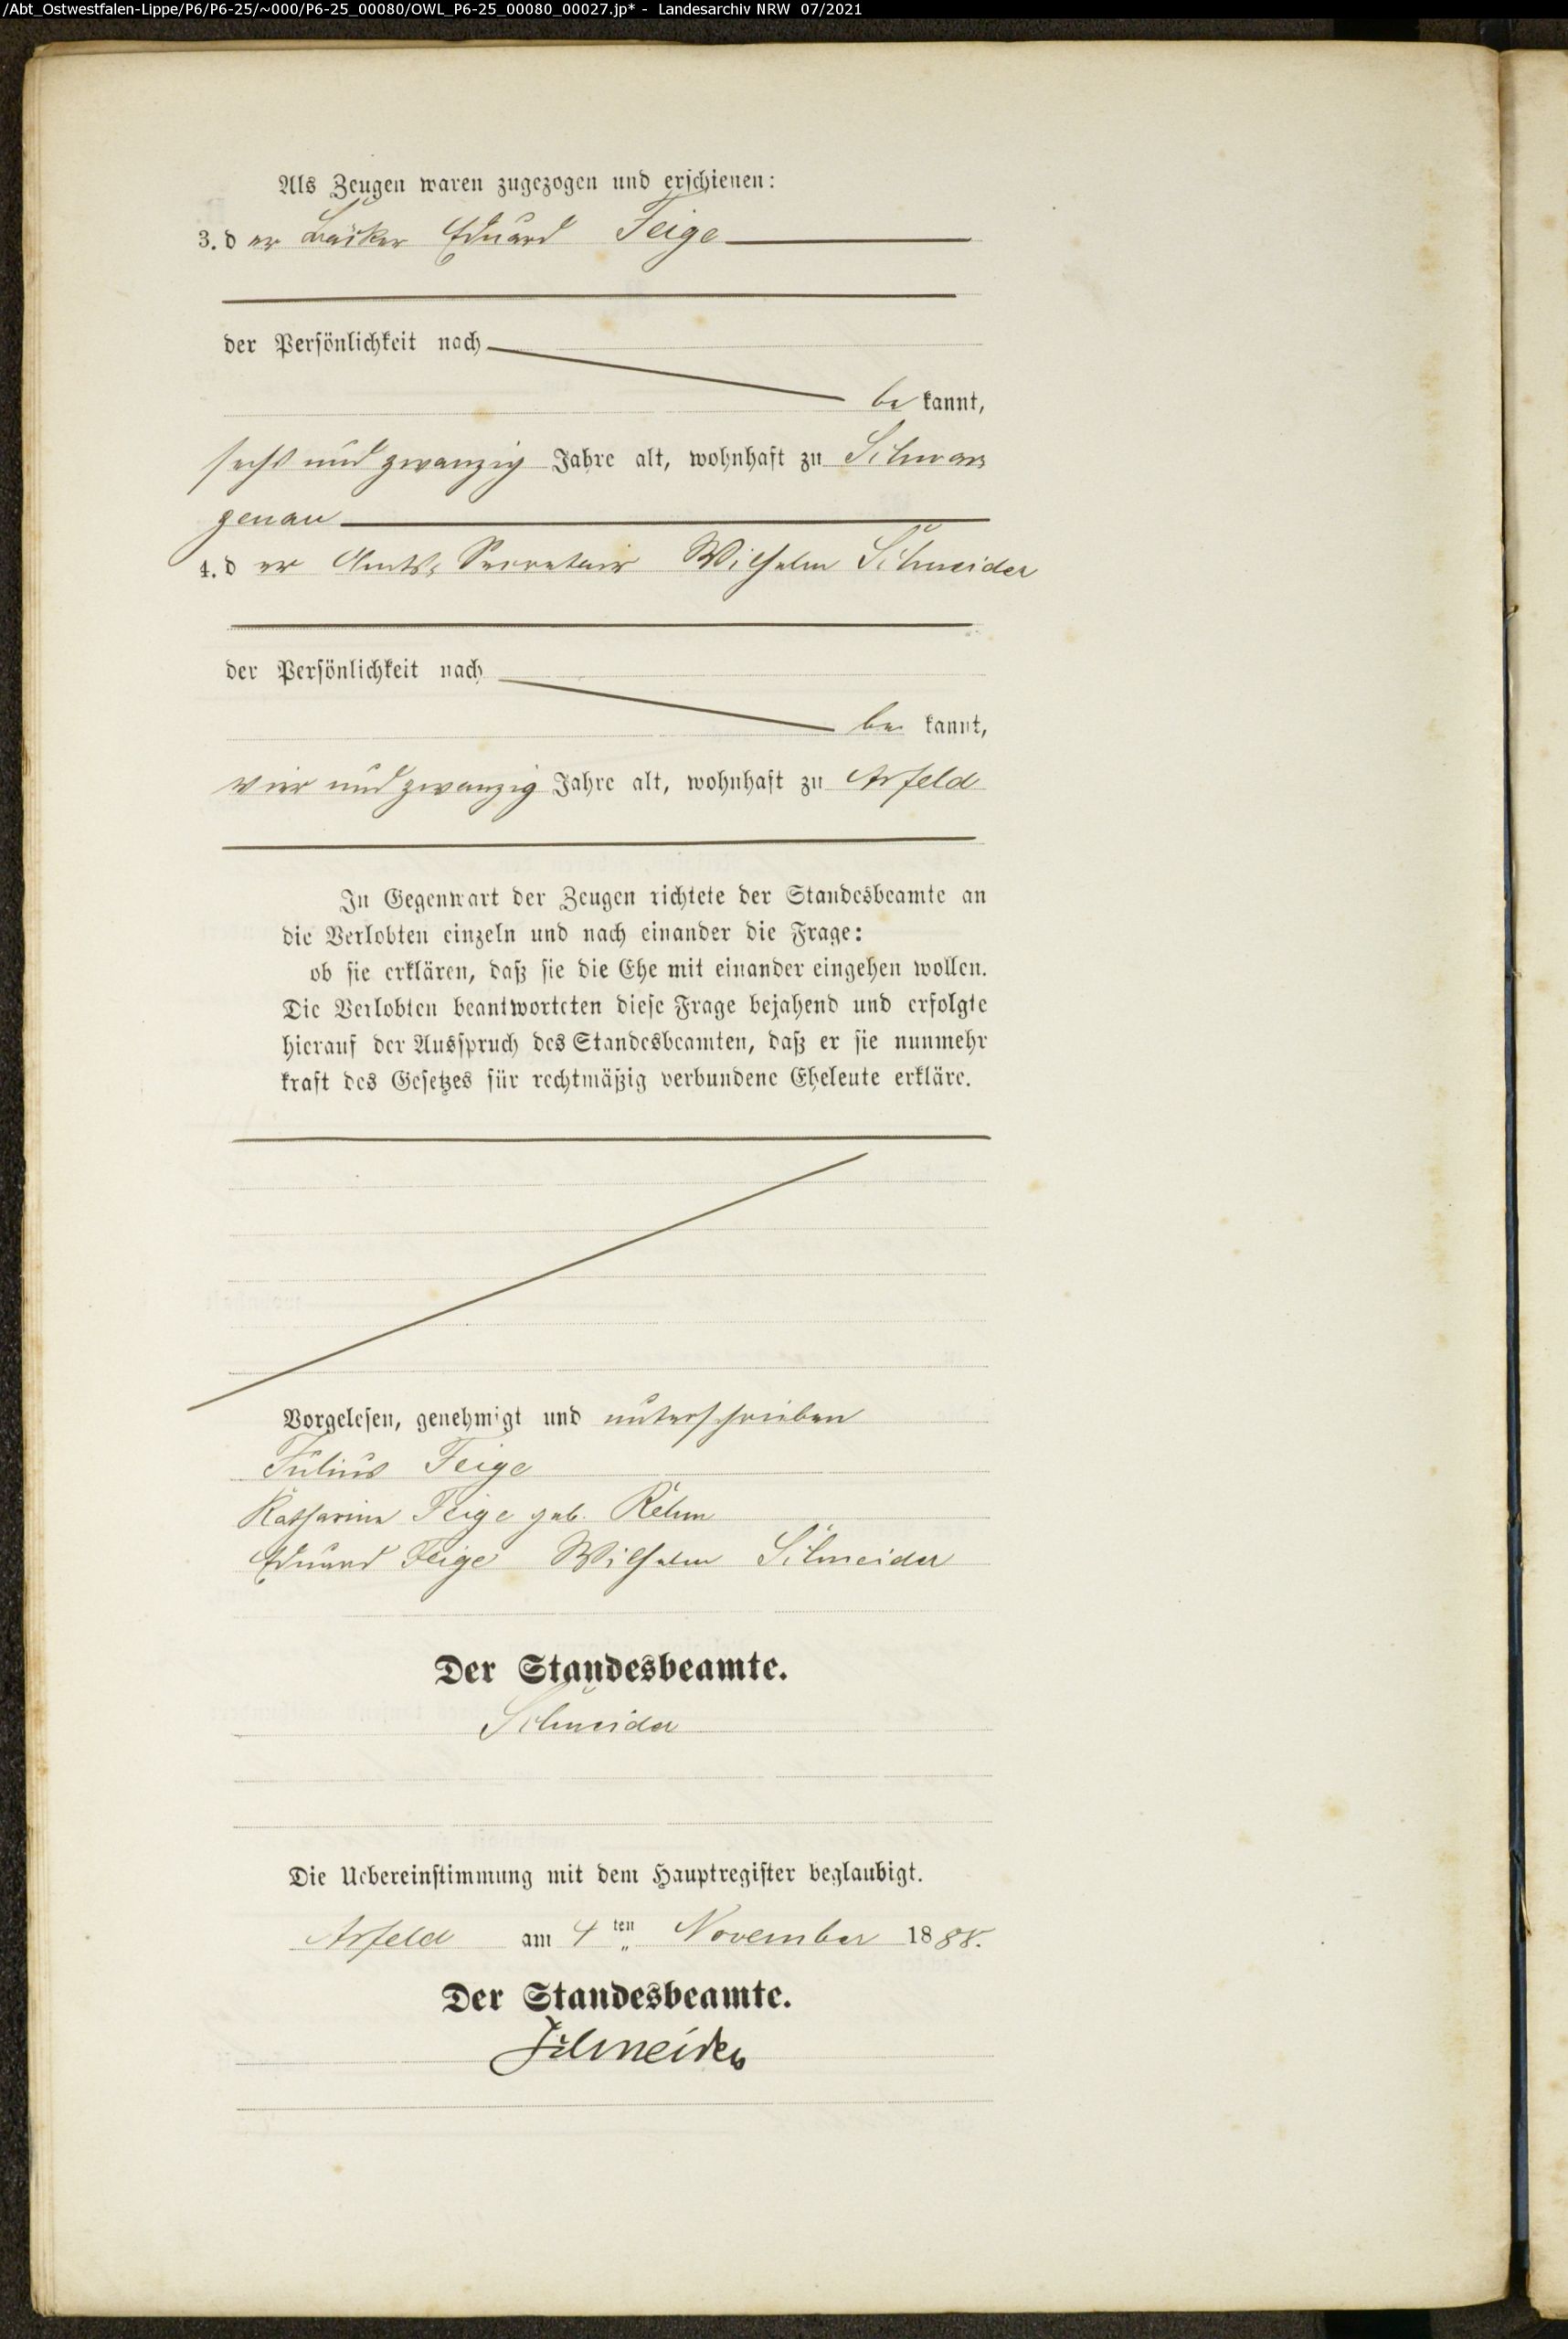 /Abt_Ostwestfalen-Lippe/P6/P6-25/~000/P6-25_00080/OWL_P6-25_00080_00027.jp* - Landesarchiv NRW 07/2021
Als Zeugen waren zugezogen und erschienen:
3. der Bäcker Eduard Feige
der Persönlichkeit nach
bekannt,
sechs und zwanzig Jahre alt, wohnhaft zu Schwarz
genau
4. der Amts, Secretair Wilhelm Schneider
der Persönlichkeit nach
bekannt,
vier und zwanzig Jahre alt, wohnhaft zu Arfeld
In Gegenwart der Zeugen richtete der Standesbeamte an
die Verlobten einzeln und nach einander die Frage:
ob sie erklären, daß sie die Ehe mit einander eingehen wollen.
Die Verlobten beantworteten diese Frage bejahend und erfolgte
hierauf der Ausspruch des Standesbeamten, daß er sie nunmehr
kraft des Gesetzes für rechtmäßig verbundene Eheleute erkläre.
Vorgelesen, genehmigt und unterschrieben
Julius Feige
Katharina Feige geb. Röhm
Eduard Feige Wilhelm Schneider
Der Standesbeamte.
Schneider
Die Uebereinstimmung mit dem Hauptregister beglaubigt.
Arfeld am 4ten November 1888.
Der Standesbeamte.
Schneider